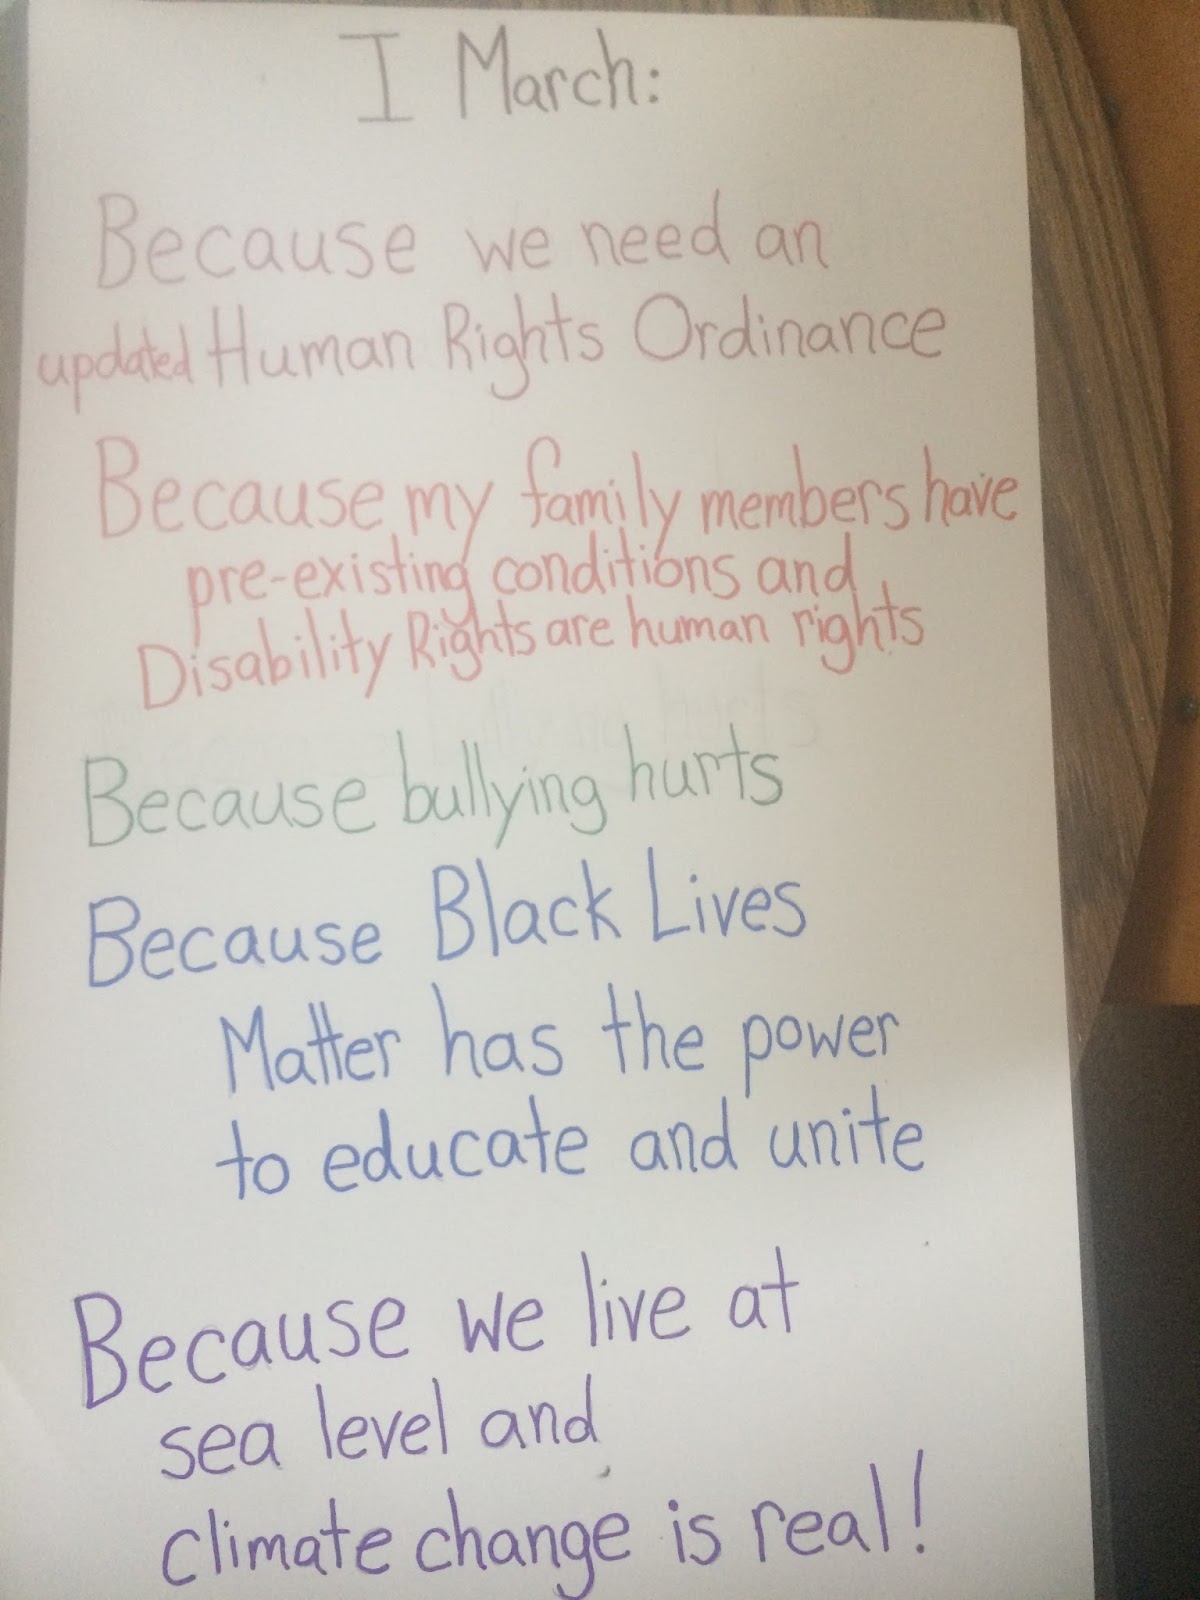 I March:
Because we need an
updated Human Rights Ordinance
Because my family members have
pre-existing conditions and
Disability Rights are human rights
Because bullying hurts
Because Black Lives
Matter has the power
to educate and unite
Because we live at
sea level and
climate change is real!